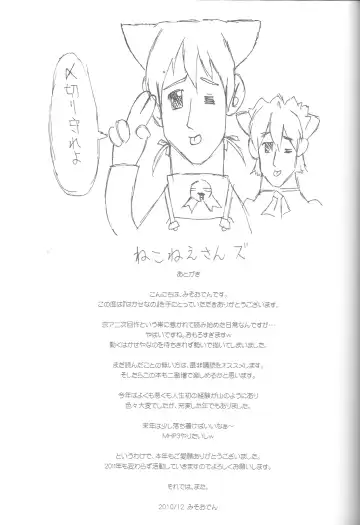 〆切り守れよ
ねこねえさんズ
あとがき
こんにちは、みそおでんです。
この度は『はかせなの』を手にとっていただきありがとうございます。
京アニ次回作という事に惹かれて読み始めた日常なんですが…
やばいですね。おもろすぎますw
動くはかせやなのを待ちきれず勢いで描いてしまいました。
まだ読んだことの無い方は、是非購読をオススメします。
そしたらこの本も二割増で楽しめるかと思います。
今年はよくも悪くも人生初の経験が山のようにあり
色々大変でしたが、充実した年でもありました。
来年は少し落ち着けばいいなぁ～
MHP3やりたいしw
というわけで、本年もご愛顧ありがとうございました。
2011年も変わらず活動していきますのでよろしくお願いします。
それでは、また。
2010/12 みそおでん